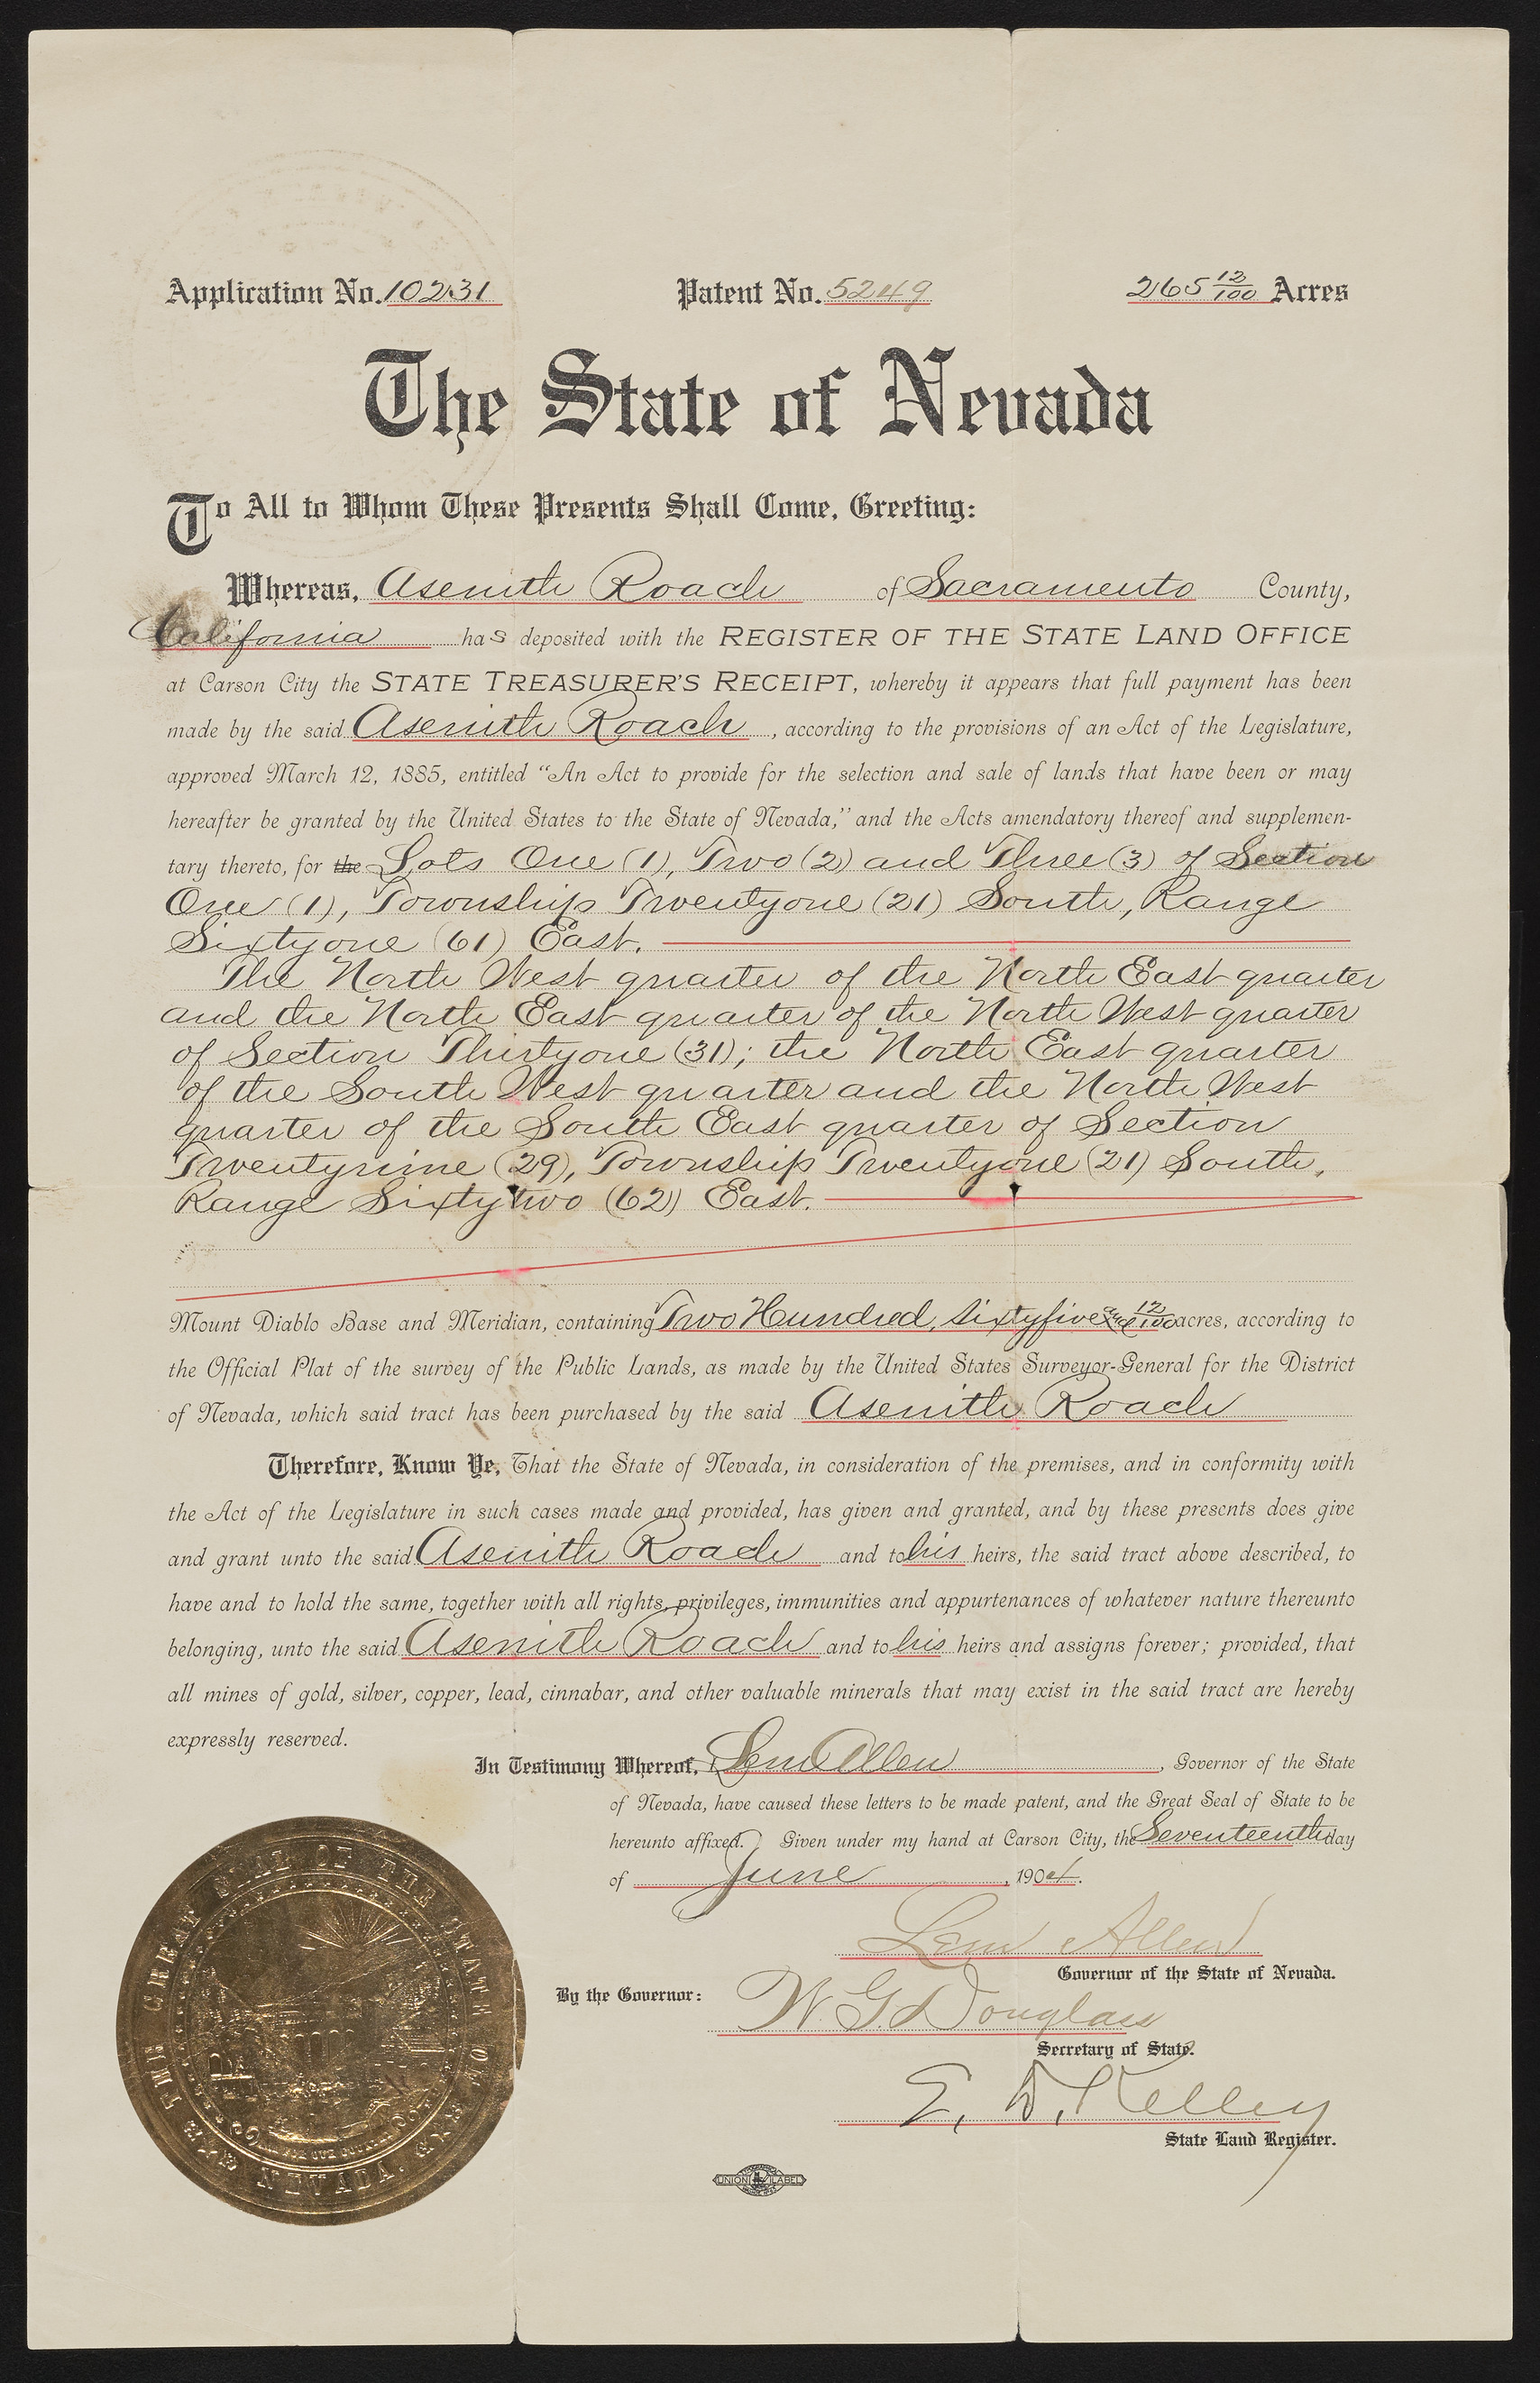 Application No. 10231 Patent No. 5249 265 12/100 Acres
The State of Nevada
To All to Whom These Presents Shall Come, Greeting:
Whereas, Asenith Roach of Sacramento County,
California has deposited with the REGISTER OF THE STATE LAND OFFICE
at Carson City the STATE TREASURER'S RECEIPT, whereby it appears that full payment has been
made by the said Asenith Roach, according to the provisions of an Act of the Legislature,
approved March 12, 1885, entitled "An Act to provide for the selection and sale of lands that have been or may
hereafter be granted by the United States to the State of Nevada," and the Acts amendatory thereof and supplemen-
tary thereto, for the Lots One (1), Two (2) and Three (3) of Section
One (1), Township Twentyone (21) South, Range
Sixtyone (61) East.
The North West quarter of the North East quarter
and the North East quarter of the North West quarter
of Section Thirtyone (31); the North East quarter
of the South West quarter and the North West
quarter of the South East quarter of Section
Twentynine (29), Township Twentyone (21) South,
Range Sixtytwo (62) East.
Mount Diablo Base and Meridian, containing Two Hundred, Sixtyfive and 12/100 acres, according to
the Official Plat of the survey of the Public Lands, as made by the United States Surveyor-General for the District
of Nevada, which said tract has been purchased by the said Asenith Roach
Therefore, Know Ye, That the State of Nevada, in consideration of the premises, and in conformity with
the Act of the Legislature in such cases made and provided, has given and granted, and by these presents does give
and grant unto the said Asenith Roach and to his heirs, the said tract above described, to
have and to hold the same, together with all rights, privileges, immunities and appurtenances of whatever nature thereunto
belonging, unto the said Asenith Roach and to his heirs and assigns forever; provided, that
all mines of gold, silver, copper, lead, cinnabar, and other valuable minerals that may exist in the said tract are hereby
expressly reserved.
In Testimony Whereof, I, Lem Allen, Governor of the State
of Nevada, have caused these letters to be made patent, and the Great Seal of State to be
hereunto affixed. Given under my hand at Carson City, the Seventeenth day
of June, 1904.
Lem Allen
Governor of the State of Nevada.
By the Governor:
W. G. Douglass
Secretary of State.
E. D. Kelley
State Land Register.
THE GREAT SEAL OF THE STATE OF NEVADA
ALL FOR OUR COUNTRY
UNION LABEL